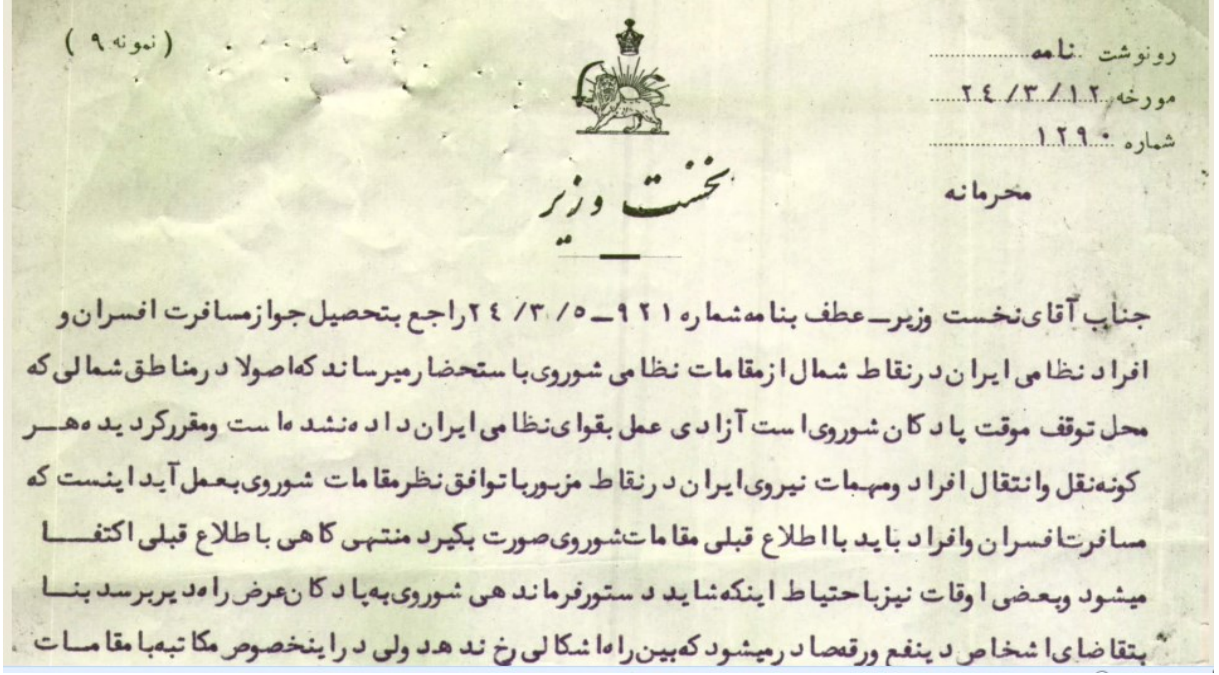 ( نمونه ۹ )
رونوشت نامه
مورخه ۲۴/۳/۱۲
شماره ۱۲۹۰
محرمانه
نخست وزیر
جناب آقای نخست وزیر ــ عطف بنامه شماره ۹۲۱ ــ ۲۴/۳/۵ راجع بتحصیل جواز مسافرت افسران و
افراد نظامی ایران در نقاط شمال از مقامات نظامی شوروی باستحضار میرساند که اصولا در مناطق شمالی که
محل توقف موقت پادکان شوروی است آزادی عمل بقوای نظامی ایران داده نشده است ومقرر کردیده هــر
کونه نقل وانتقال افراد ومهمات نیروی ایران در نقاط مزبور با توافق نظر مقامات شوروی بعمل آید اینست که
مسافرت افسران وافراد باید با اطلاع قبلی مقامات شوروی صورت بگیرد منتهی کاهی باطلاع قبلی اکتفــا
میشود وبعضی اوقات نیز باحتیاط اینکه شاید دستور فرماندهی شوروی به پادکان عرض راه دیر برسد بنــا
بتقاضای اشخاص دینفع ورقه صادر میشود که بین راه اشکالی رخ ندهد ولی در اینخصوص مکاتبه با مقامــات